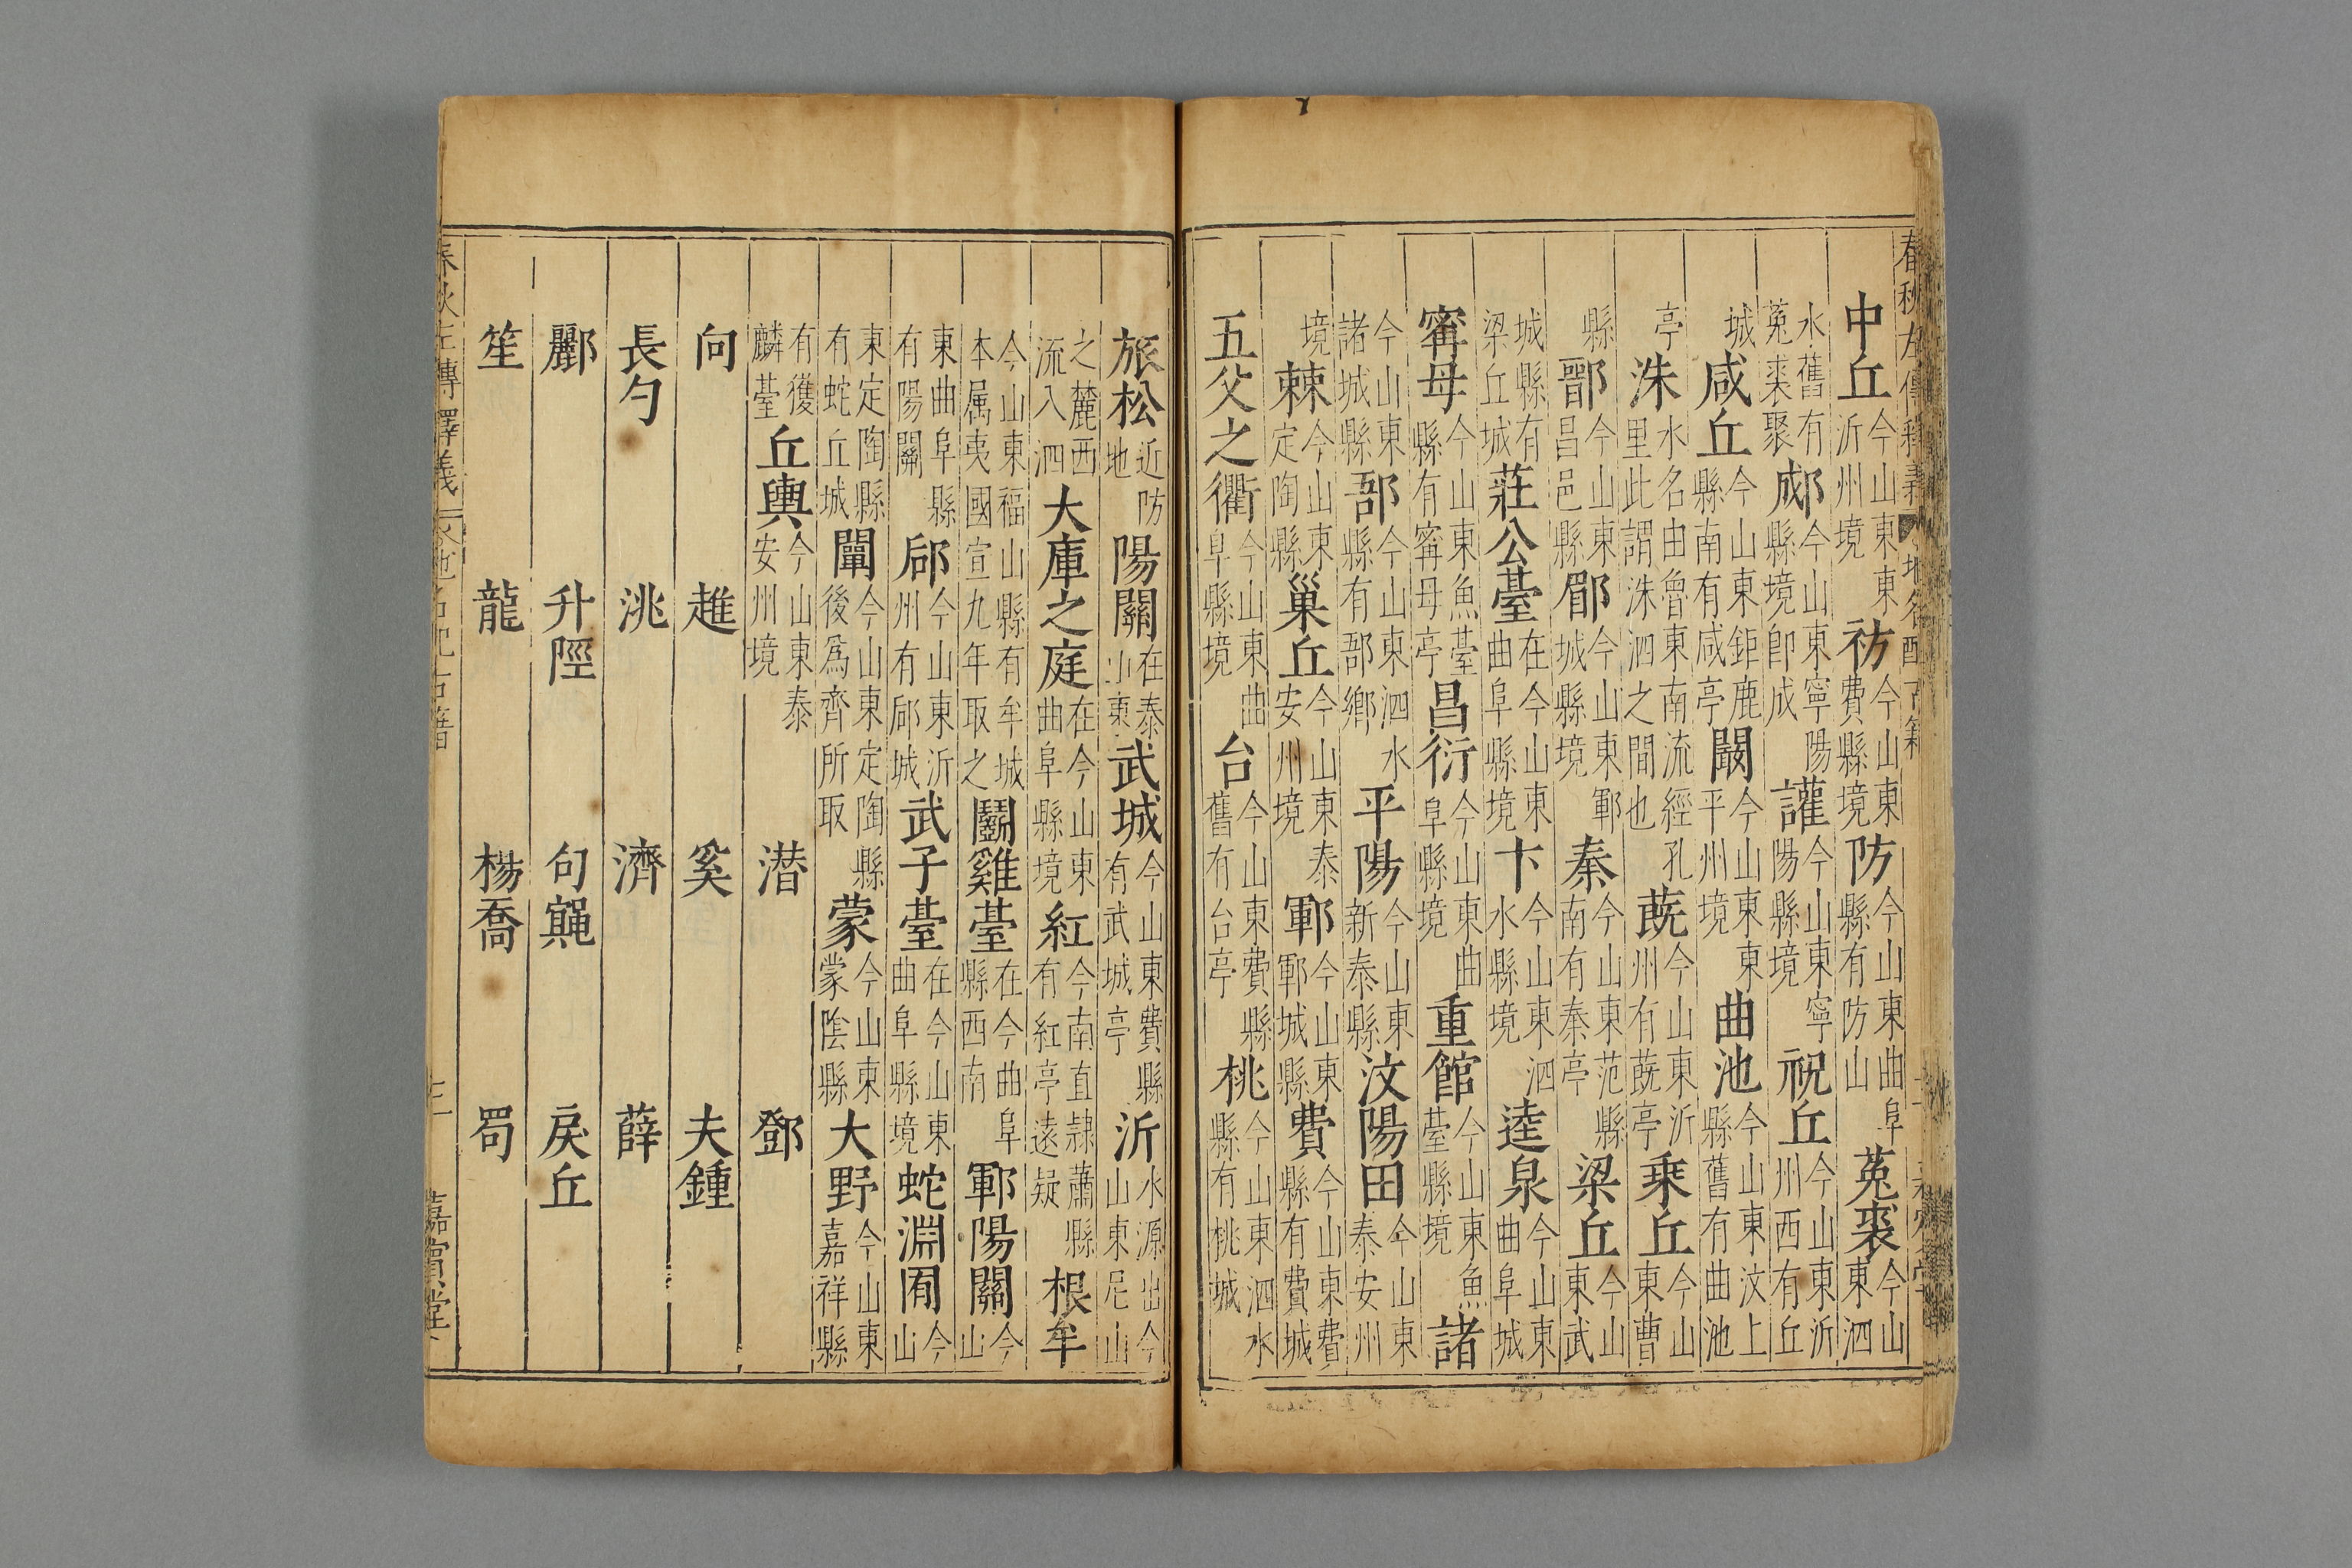 春秋左傳釋義 地名配古籍
中丘今山東東沂州境祊今山東費縣境防今山東曲阜縣有防山菟裘今山東泗
水舊有菟裘聚郕今山東寧陽縣境卽成讙今山東寧陽縣境祝丘今山東沂州西有丘
城咸丘今山東鉅鹿縣南有咸亭闞今山東東平州境曲池今山東汶上縣舊有曲池
亭洙水名由魯東南流經孔里此謂洙泗之間也蔇今山東沂州有蔇亭乗丘今山東曹
縣鄑今山東昌邑縣郿今山東鄆城縣境秦今山東范縣南有秦亭梁丘今山東武
城縣有梁丘城莊公臺在今山東曲阜縣境卞今山東泗水縣境逵泉今山東曲阜城
甯母今山東魚臺縣有甯母亭昌衍今山東曲阜縣境重館今山東魚臺縣境諸
今山東諸城縣郚今山東泗水縣有郚鄉平陽今山東新泰縣汶陽田今山東泰安州
境棘今山東定陶縣巢丘今山東泰安州境鄆今山東鄆城縣費今山東費縣有費城
五父之衢今山東曲阜縣境台今山東費縣舊有台亭桃今山東泗水縣有桃城
旅松近防地陽關在泰山東武城今山東費縣有武城亭沂水源出今山東尼山
之麓西流入泗大庫之庭在今山東曲阜縣境紅今南直隷蕭縣有紅亭遠疑根牟
今山東福山縣有牟城本属夷國宣九年取之鬭雞臺在今曲阜縣西南鄆陽關今山
東曲阜縣有陽關郈今山東沂州有郈城武子臺在今山東曲阜縣境蛇淵囿今山
東定陶縣有蛇丘城闡今山東定陶縣後爲齊所取蒙今山東蒙隂縣大野今山東嘉祥縣
有獲麟臺丘輿今山東泰安州境 潜 鄧
向 趡 奚 夫鍾
長勺 洮 濟 薛
酈 升陘 句繩 戾丘
笙 龍 楊喬 蜀
春秋左傳釋義 地名配古籍 嘉賓堂